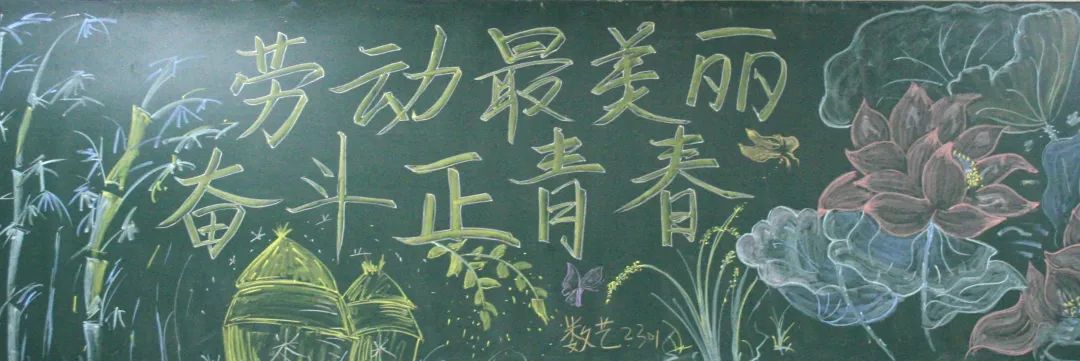 劳动最美丽
奋斗正青春
米
米
数艺2301